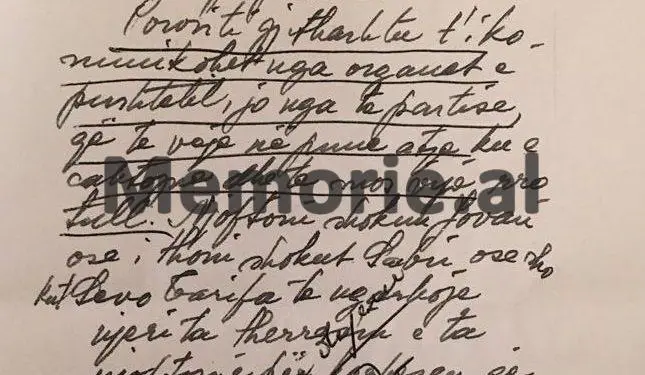 Porositi gjithashtu t'i ko-
munikohet nga organet e
pushtetit, jo nga të partisë,
që të vejë në punë atje ku e
dhe të mos vijë rro
tull. Njoftoni shokun Jovan
ose i thoni shokut Sabri ose sho
kut Sevo Tarifa të ngarkojë
njeri ta thërresin e ta
Memorie.al